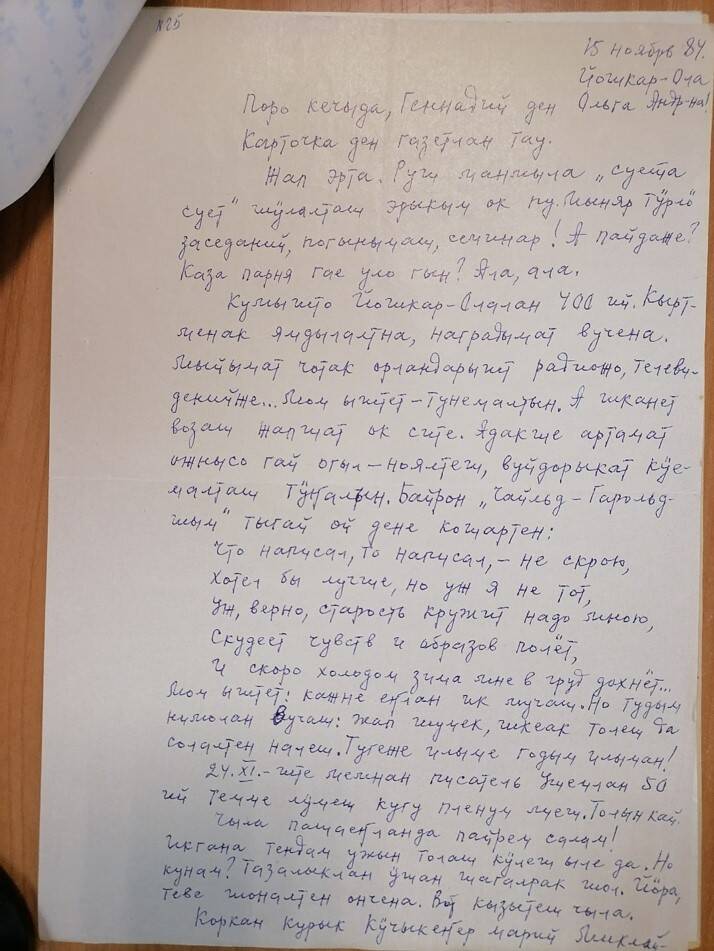 №25
15 ноябрь 84.
Йошкар-Ола
Поро кечыда, Геннадий ден Ольга Андр-на!
Карточка ден газетлан тау.
Жап эрта. Руш манмыла „суета
сует" шӱлалташ эрыкым ок пу. Мыняр тӱрлӧ
заседаний, погынымаш, семинар! А пайдаже?
Каза парня гае уло гын? Ала, ала.
Кумышто Йошкар-Олалан 400 ий. Кырт-
менак ямдылалтна, наградымат вучена.
Мыйымат чотак орландарышт радиожо, телеви-
денийже... Мом ыштет - тунемалтын. А шканет
возаш жапшат ок сите. Адакше артамат
ожнысо гай огыл - ноялтеш, вуйдорыкат кӱе-
малташ тӱҥалын. Байрон „Чайльд-Гарольд-
шым" тыгай ой дене кошартен:
Что написал, то написал, - не скрою,
Хотел бы лучше, но уж я не тот,
Уж, верно, старость кружит надо мною,
Скудеет чувств и образов полёт,
И скоро холодом зима мне в грудь дохнёт...
Мом ыштет: кажне еҥлан ик мучаш. Но тудым
нимолан вучаш: жап шумек, шкеак толеш да
солалтен налеш. Тугеже илыме годым илыман!
24.XI.-ште мемнан писатель ушемлан 50
ий темме лӱмеш кугу пленум лиеш. Толын кай.
Чыла пашаеҥланда пайрем салам!
Икгана тендам ужын толаш кӱлеш ыле да. Но
кунам? Тазалыклан ӱшан шагалрак шол. Йӧра,
теве шоналтен ончена. Вот кызытеш чыла.
Коркан курык Кӱчыкеҥер марий Миклай-